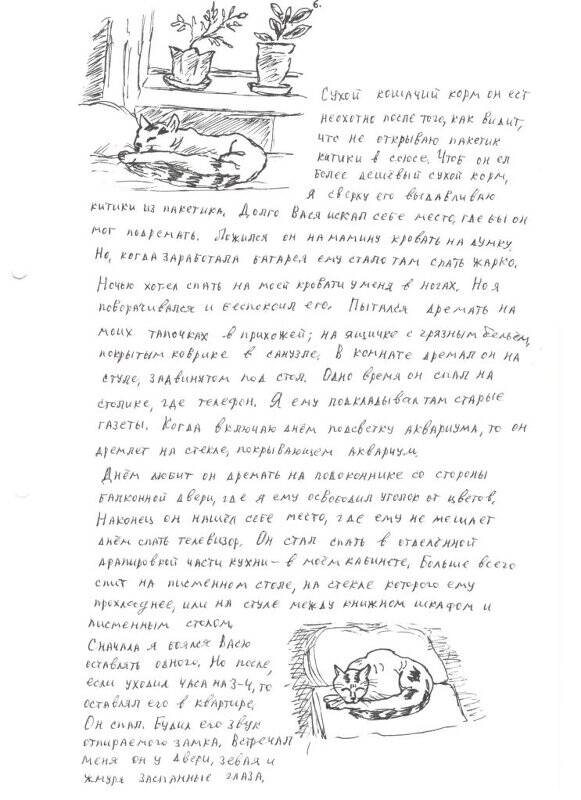 6.
Сухой кошачий корм он ест
неохотно после того, как видит,
что не открываю пакетик
китики в союсе. Чтоб он ел
более дешёвый сухой корм,
я сверху его выдавливаю
китики из пакетика. Долго Вася искал себе место, где бы он
мог подремать. Ложился он на мамину кровать на думку.
Но, когда заработала батарея ему стало там спать жарко.
Ночью хотел спать на моей кровати у меня в ногах. Но я
поворачивался и беспокоил его. Пытался дремать на
моих тапочках в прихожей; на ящичке с грязным бельём,
покрытым коврике в санузле. В комнате дремал он на
стуле, задвинутом под стол. Одно время он спал на
столике, где телефон. Я ему подкладывал там старые
газеты. Когда включаю днём подсветку аквариума, то он
дремлет на стекле, покрывающем аквариум.
Днём любит он дремать на подоконнике со стороны
балконной двери, где я ему освободил уголок от цветов.
Наконец он нашёл себе место, где ему не мешает
днём спать телевизор. Он стал спать в отделённой
драпировкой части кухни – в моём кабинете. Больше всего
спит на письменном столе, на стекле которого ему
прохладнее, или на стуле между книжном шкафом и
письменным столом.
Сначала я боялся Васю
оставлять одного. Но после,
если уходил часа на 3-4, то
оставлял его в квартире.
Он спал. Будил его звук
отпираемого замка. Встречал
меня он у двери, зевая и
жмуря заспанные глаза.